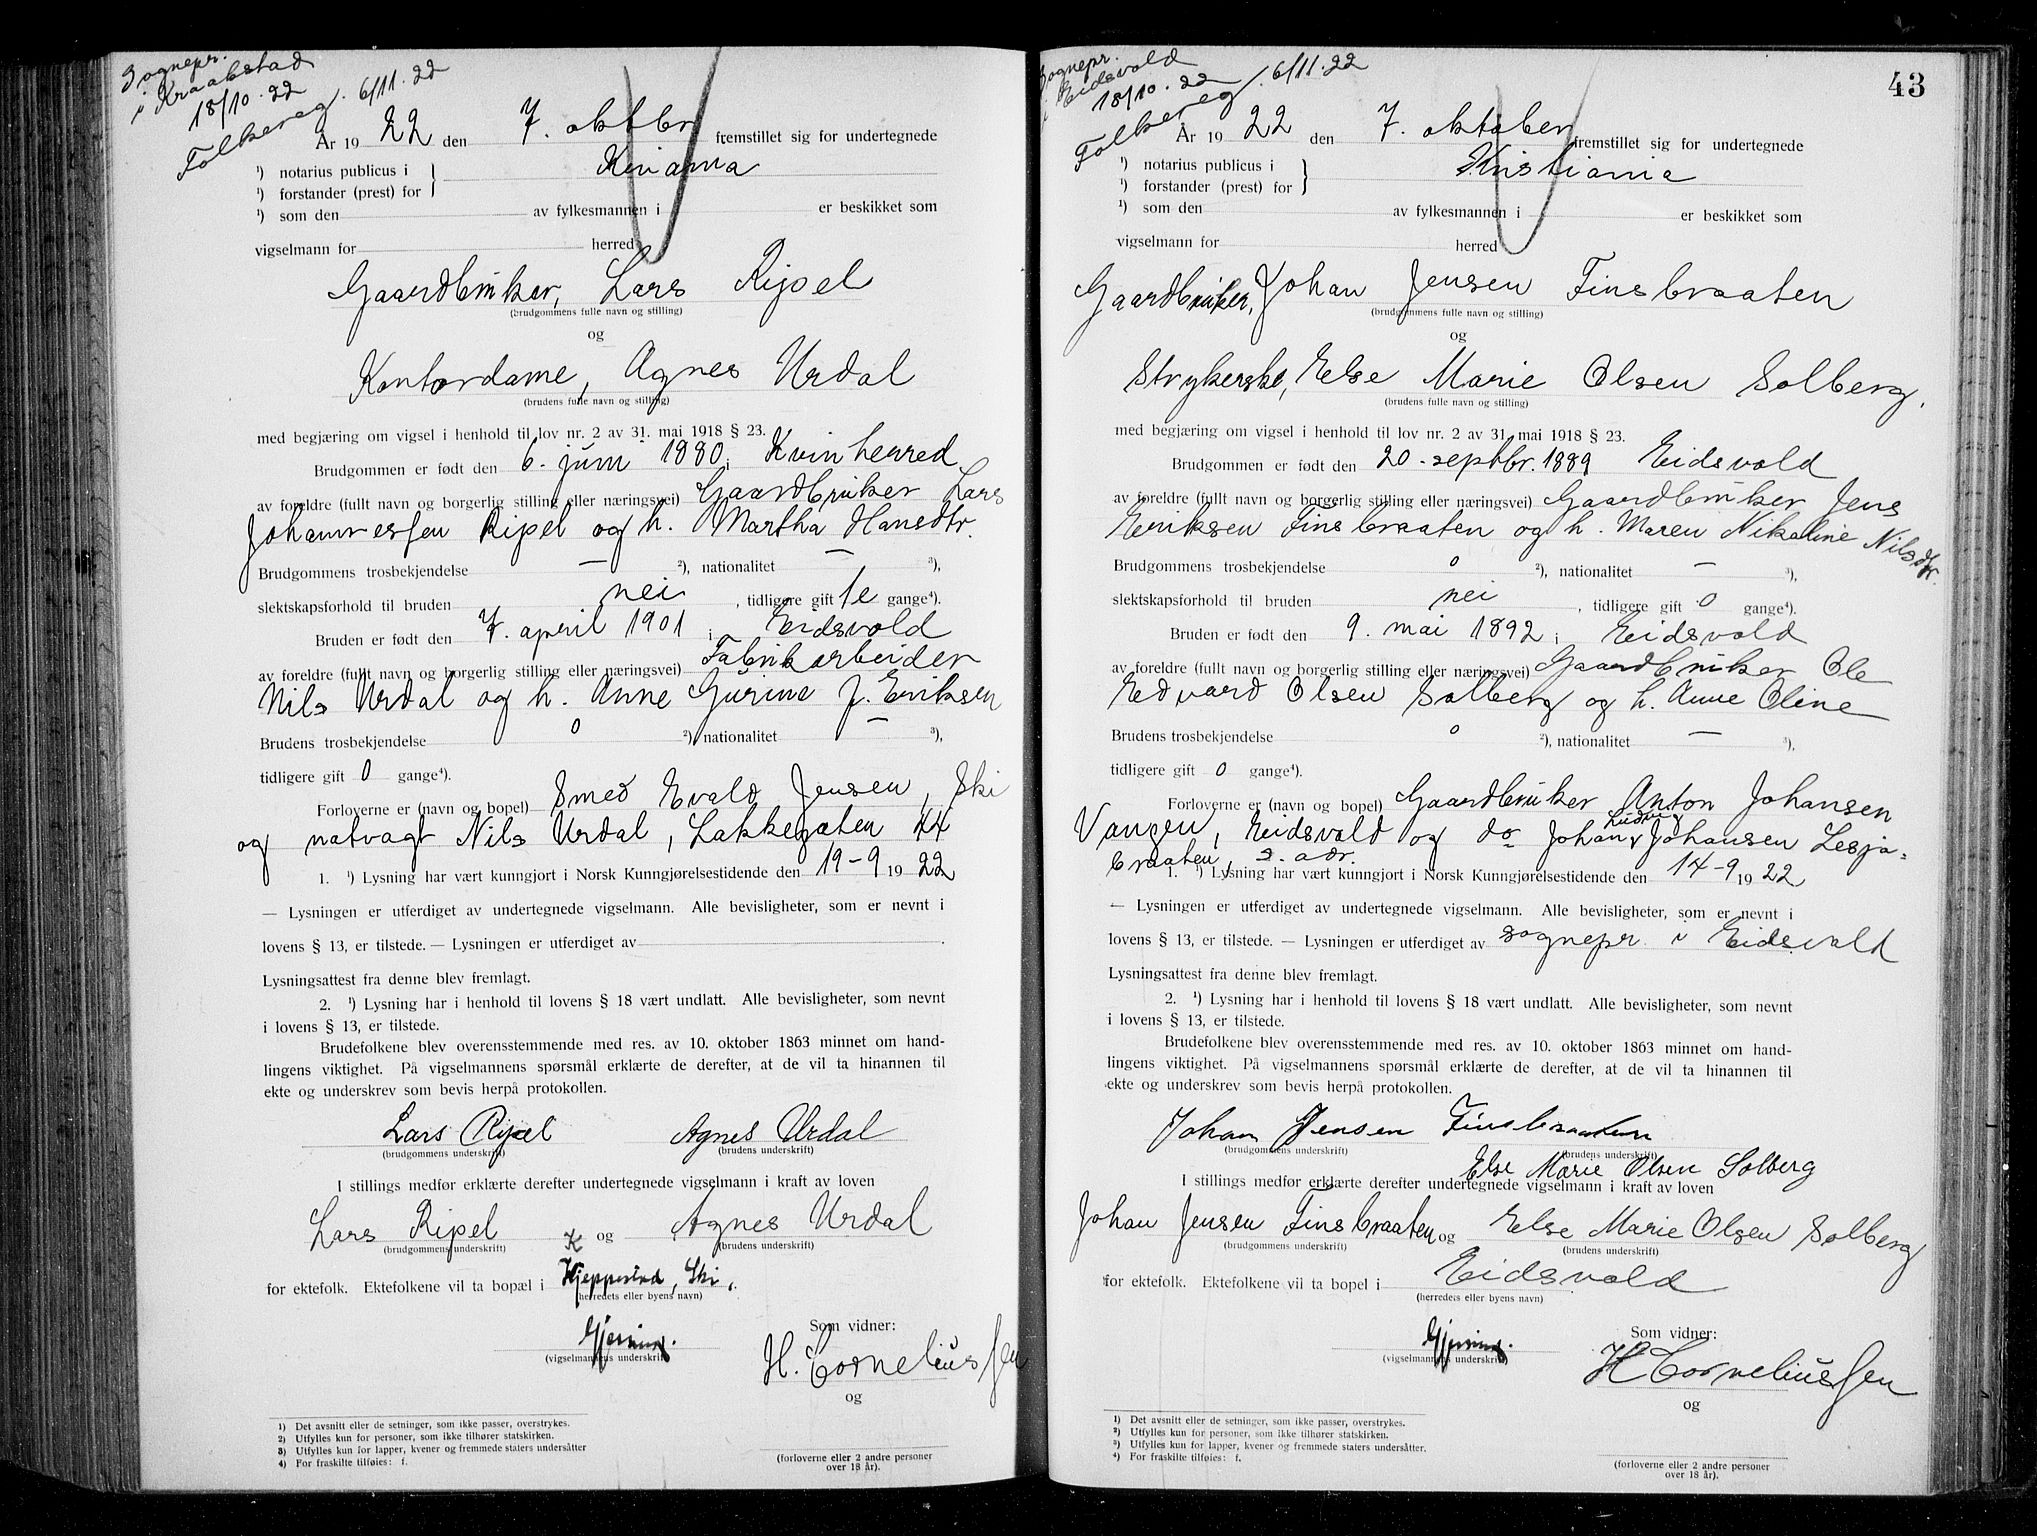 Sognepr.
i Kraakstad
18/10.22
Folkereg. 6/11.22
År 1922 den 7. oktbr fremstillet sig for undertegnede
¹) notarius publicus i
¹) forstander (prest) for
Kriania
¹) som den av fylkesmannen i er beskikket som
vigselmann for herred
Gaardbruker, Lars Ripel
(brudgommens fulle navn og stilling)
og
Kontordame, Agnes Urdal
(brudens fulle navn og stilling)
med begjæring om vigsel i henhold til lov nr. 2 av 31. mai 1918 § 23.
Brudgommen er født den 6. juni 1880 i Kvinherred
av foreldre (fullt navn og borgerlig stilling eller næringsvei) Gaardbruker Lars
Johannessen Ripel og h. Martha Hansdtr.
Brudgommens trosbekjendelse — ²), nationalitet — ³),
slektskapsforhold til bruden nei , tidligere gift 1e gange⁴).
Bruden er født den 7. april 1901 i Eidsvold
av foreldre (fullt navn og borgerlig stilling eller næringsvei) Fabrikarbeider
Nils Urdal og h. Anne Gurine f. Eriksen
Brudens trosbekjendelse 0 ²) nationalitet — ³),
tidligere gift 0 gange⁴).
Forloverne er (navn og bopel) Smed Evald Jensen, Ski
og natvagt Nils Urdal, Lakkegaten 44
1. ¹) Lysning har vært kunngjort i Norsk Kunngjørelsestidende den 19-9 1922
— Lysningen er utferdiget av undertegnede vigselmann. Alle bevisligheter, som er nevnt i
lovens § 13, er tilstede. — Lysningen er utferdiget av .
Lysningsattest fra denne blev fremlagt.
2. ¹) Lysning har i henhold til lovens § 18 vært undlatt. Alle bevisligheter, som nevnt
i lovens § 13, er tilstede.
Brudefolkene blev overensstemmende med res. av 10. oktober 1863 minnet om hand-
lingens viktighet. På vigselmannens spørsmål erklærte de derefter, at de vil ta hinannen til
ekte og underskrev som bevis herpå protokollen.
Lars Ripel Agnes Urdal
(brudgommens underskrift) (brudens underskrift)
I stillings medfør erklærte derefter undertegnede vigselmann i kraft av loven
Lars Ripel og Agnes Urdal
(brudgommens underskrift) (brudens underskrift)
K
for ektefolk. Ektefolkene vil ta bopæl i Kjeppestad, Ski.
(herredets eller byens navn)
Som vidner:
Gjerning.
(vigselmannens underskrift)
H. Corneliussen
og
1) Det avsnitt eller de setninger, som ikke passer, overstrykes.
2) Utfylles kun for personer, som ikke tilhører statskirken.
3) Utfylles kun for lapper, kvener og fremmede staters undersåtter
4) For fraskilte tilføies: f.
(forloverne eller 2 andre personer
over 18 år).
43
Sognepr.
i Eidsvold
18/10.22
Folkereg. 6/11.22
År 1922 den 7. oktober fremstillet sig for undertegnede
¹) notarius publicus i
¹) forstander (prest) for
Kristiania
¹) som den av fylkesmannen i er beskikket som
vigselmann for herred
Gaardbruker, Johan Jensen Finsbraaten
(brudgommens fulle navn og stilling)
og
Strykerske, Else Marie Olsen Solberg.
(brudens fulle navn og stilling)
med begjæring om vigsel i henhold til lov nr. 2 av 31. mai 1918 § 23.
Brudgommen er født den 20. septbr. 1889 Eidsvold
av foreldre (fullt navn og borgerlig stilling eller næringsvei) Gaardbruker Jens
Eriksen Finsbraaten og h. Maren Nikoline Nilsdtr.
Brudgommens trosbekjendelse 0 ²), nationalitet — ³),
slektskapsforhold til bruden nei , tidligere gift 0 gange⁴).
Bruden er født den 9. mai 1892 i Eidsvold
av foreldre (fullt navn og borgerlig stilling eller næringsvei) Gaardbruker Ole
Edvard Olsen Solberg og h. Anne Oline
Brudens trosbekjendelse 0 ²), nationalitet — ³),
tidligere gift 0 gange⁴).
Forloverne er (navn og bopel) Gaardbruker Anton Johansen
Vangen, Eidsvold og do Johan Ludvig Johansen Lesja-
braaten, s. adr.
1. ¹) Lysning har vært kunngjort i Norsk Kunngjørelsestidende den 14-9 1922
— Lysningen er utferdiget av undertegnede vigselmann. Alle bevisligheter, som er nevnt i
lovens § 13, er tilstede. — Lysningen er utferdiget av sognepr. i Eidsvold
Lysningsattest fra denne blev fremlagt.
2. ¹) Lysning har i henhold til lovens § 18 vært undlatt. Alle bevisligheter, som nevnt
i lovens § 13, er tilstede.
Brudefolkene blev overensstemmende med res. av 10. oktober 1863 minnet om hand-
lingens viktighet. På vigselmannens spørsmål erklærte de derefter, at de vil ta hinannen til
ekte og underskrev som bevis herpå protokollen.
Johan Jensen Finsbraaten
(brudgommens underskrift) (brudens underskrift)
Else Marie Olsen Solberg
I stillings medfør erklærte derefter undertegnede vigselmann i kraft av loven
Johan Jensen Finsbraaten og Else Marie Olsen Solberg
(brudgommens underskrift) (brudens underskrift)
for ektefolk. Ektefolkene vil ta bopel i Eidsvold
(herredets eller byens navn)
Som vidner:
Gjerning.
(vigselmannens underskrift)
H Corneliussen
og
1) Det avsnitt eller de setninger, som ikke passer, overstrykes.
²) Utfylles kun for personer, som ikke tilhører statskirken.
³) Utfylles kun for lapper, kvener og fremmede staters undersåtter.
⁴) For fraskilte tilføies: f.
(forloverne eller 2 andre personer
over 18 år).